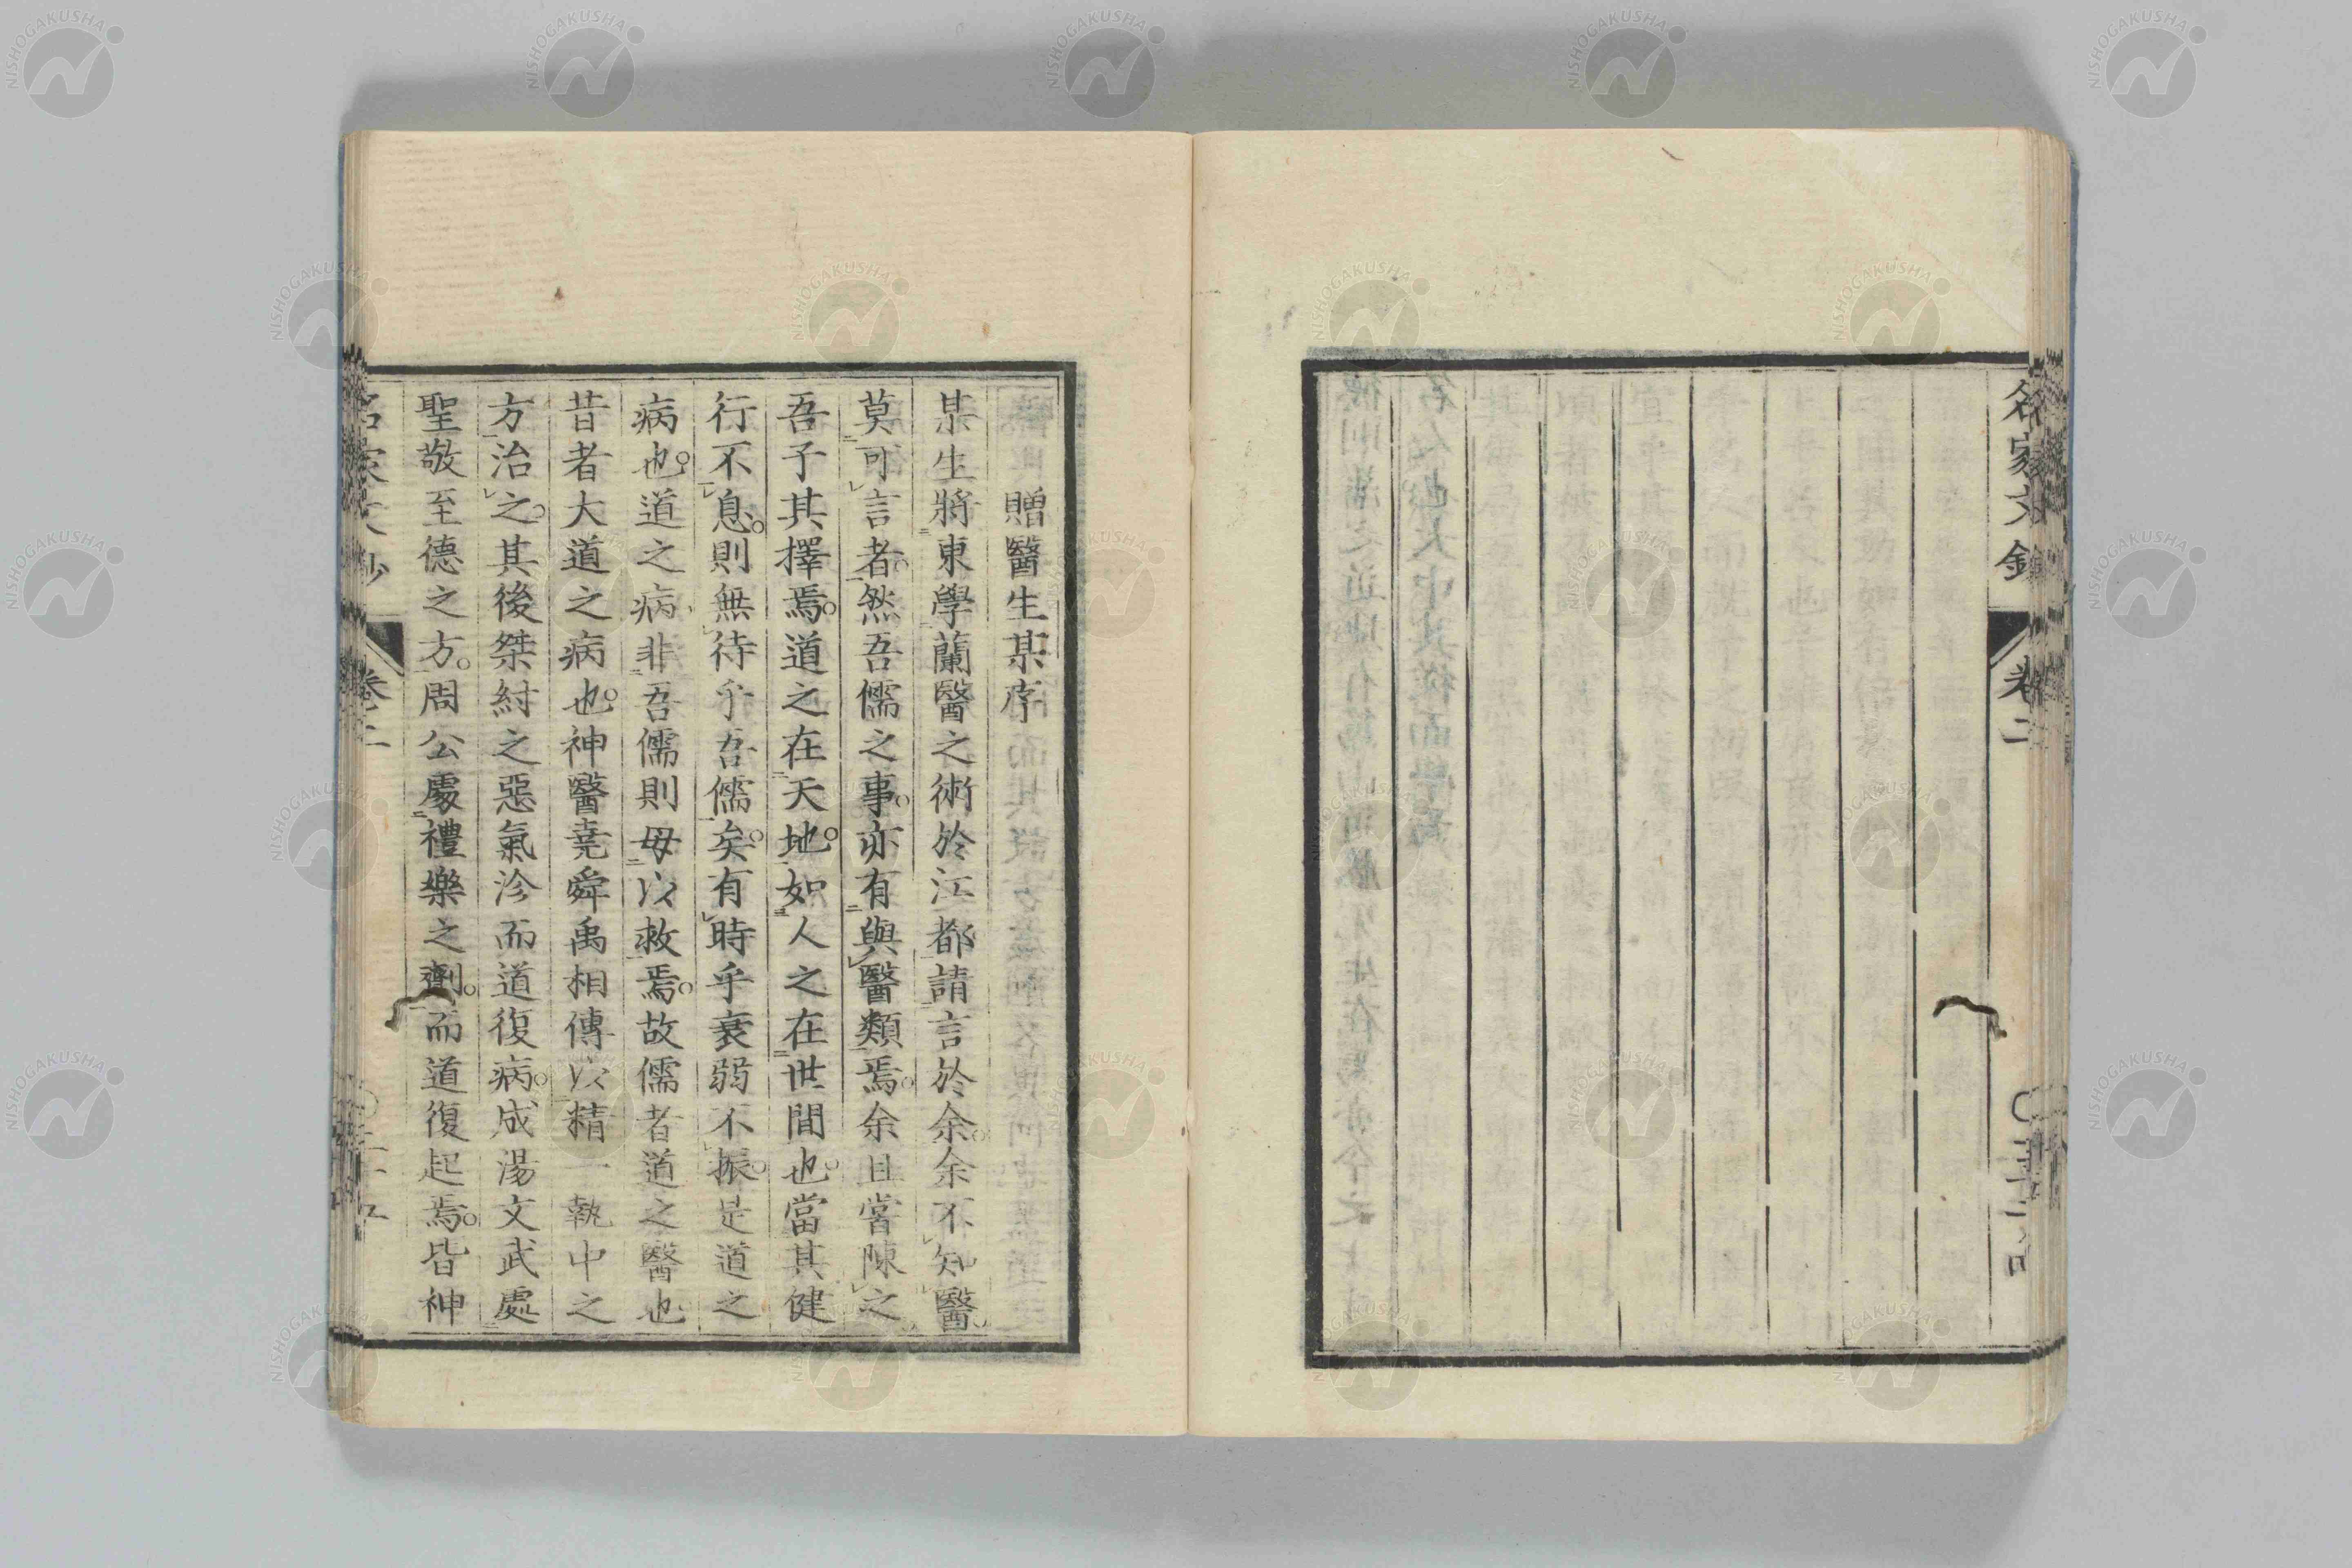 名家文鈔
卷二
贈醫生某序
某生將東學蘭醫之術於江都請言於余余不知醫
莫可言者然吾儒之事亦有與醫類焉余且嘗陳之
吾子其擇焉道之在天地如人之在世間也當其健
行不息則無待乎吾儒矣有時乎衰弱不振是道之
病也道之病非吾儒則毋以救焉故儒者道之醫也
昔者大道之病也神醫堯舜禹相傳以精一執中之
方治之其後桀紂之惡氣沴而道復病成湯文武處
聖敬至德之方周公處禮樂之劑而道復起焉皆神
名家文鈔
卷二
NISHOGAKUSHA